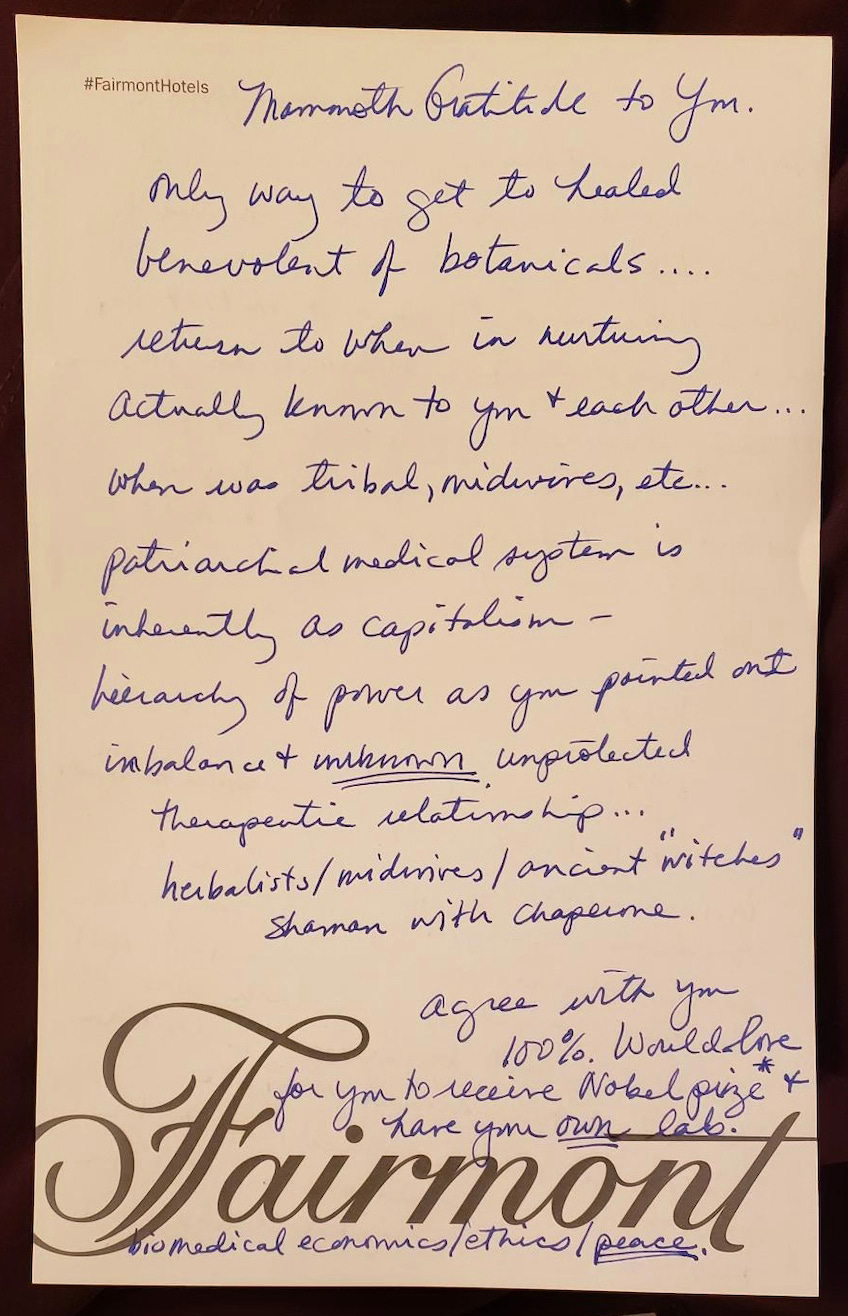 #FairmontHotels
Mammoth Gratitude to You.
only way to get to healed
benevolent of botanicals....
return to when in nurturing
Actually known to you + each other...
when was tribal, midwives, etc...
patriarchal medical system is
inherently as capitalism -
hierarchy of power as you pointed out
imbalance + unknown unprotected
therapeutic relationship...
herbalists/midwives/ancient "witches"
Shaman with Chaperone.
agree with you
100%. Would love
for you to receive Nobel prize* +
have your own lab.
Fairmont
biomedical economics/ethics/peace.